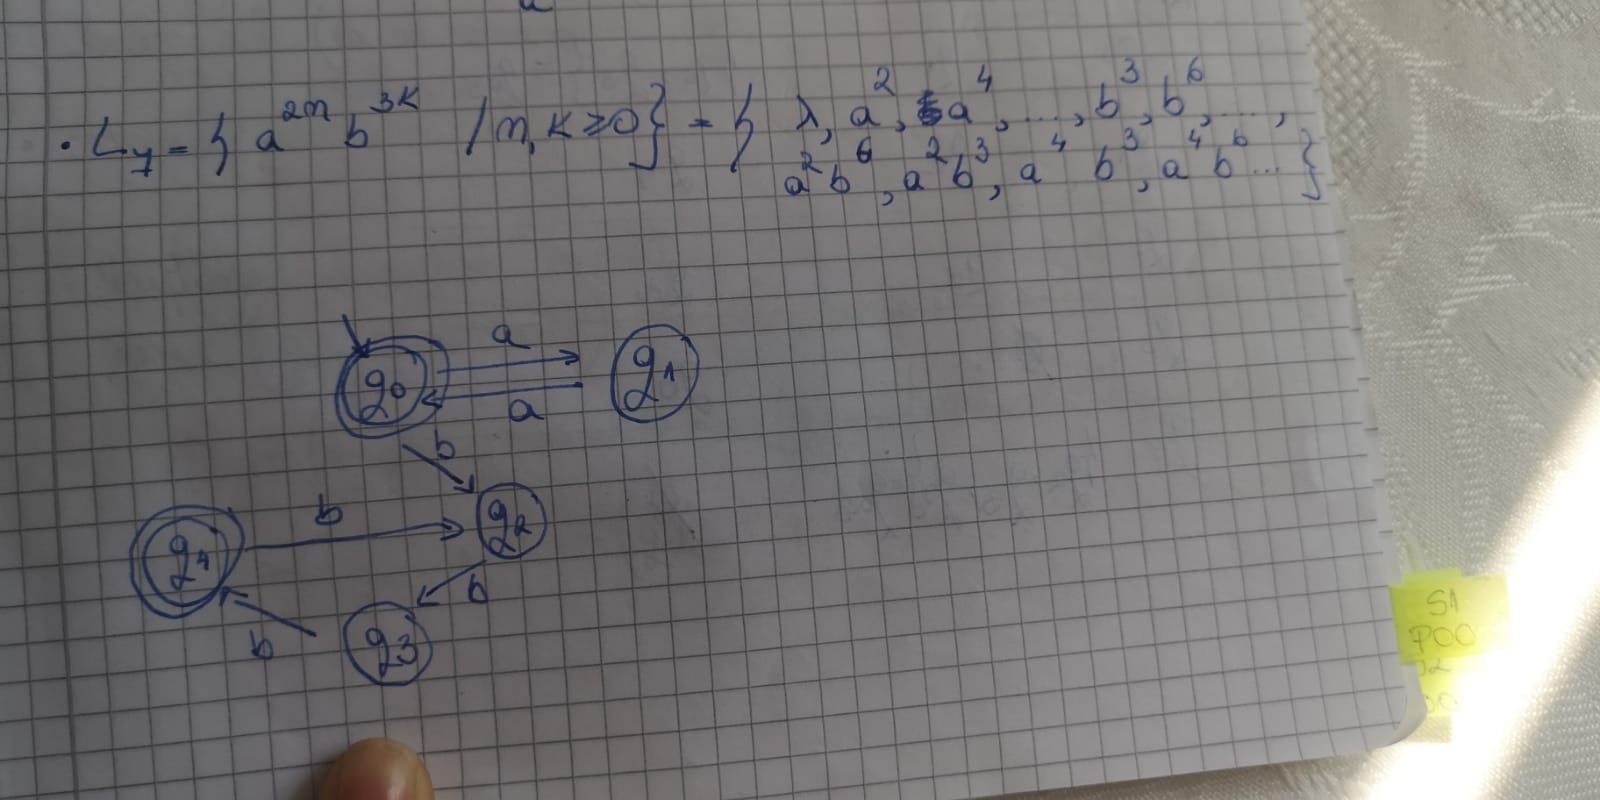 a
· L₇ = { a²ⁿ b³ᴷ / n, K ≥ 0 } = { λ, a², a⁴, ..., b³, b⁶, ...,
a²b⁶, a²b³, a⁴ b³, a⁴b⁶ ... }
a
q0 q1
a
b
b q2
q4
b
b q3
S1
POO